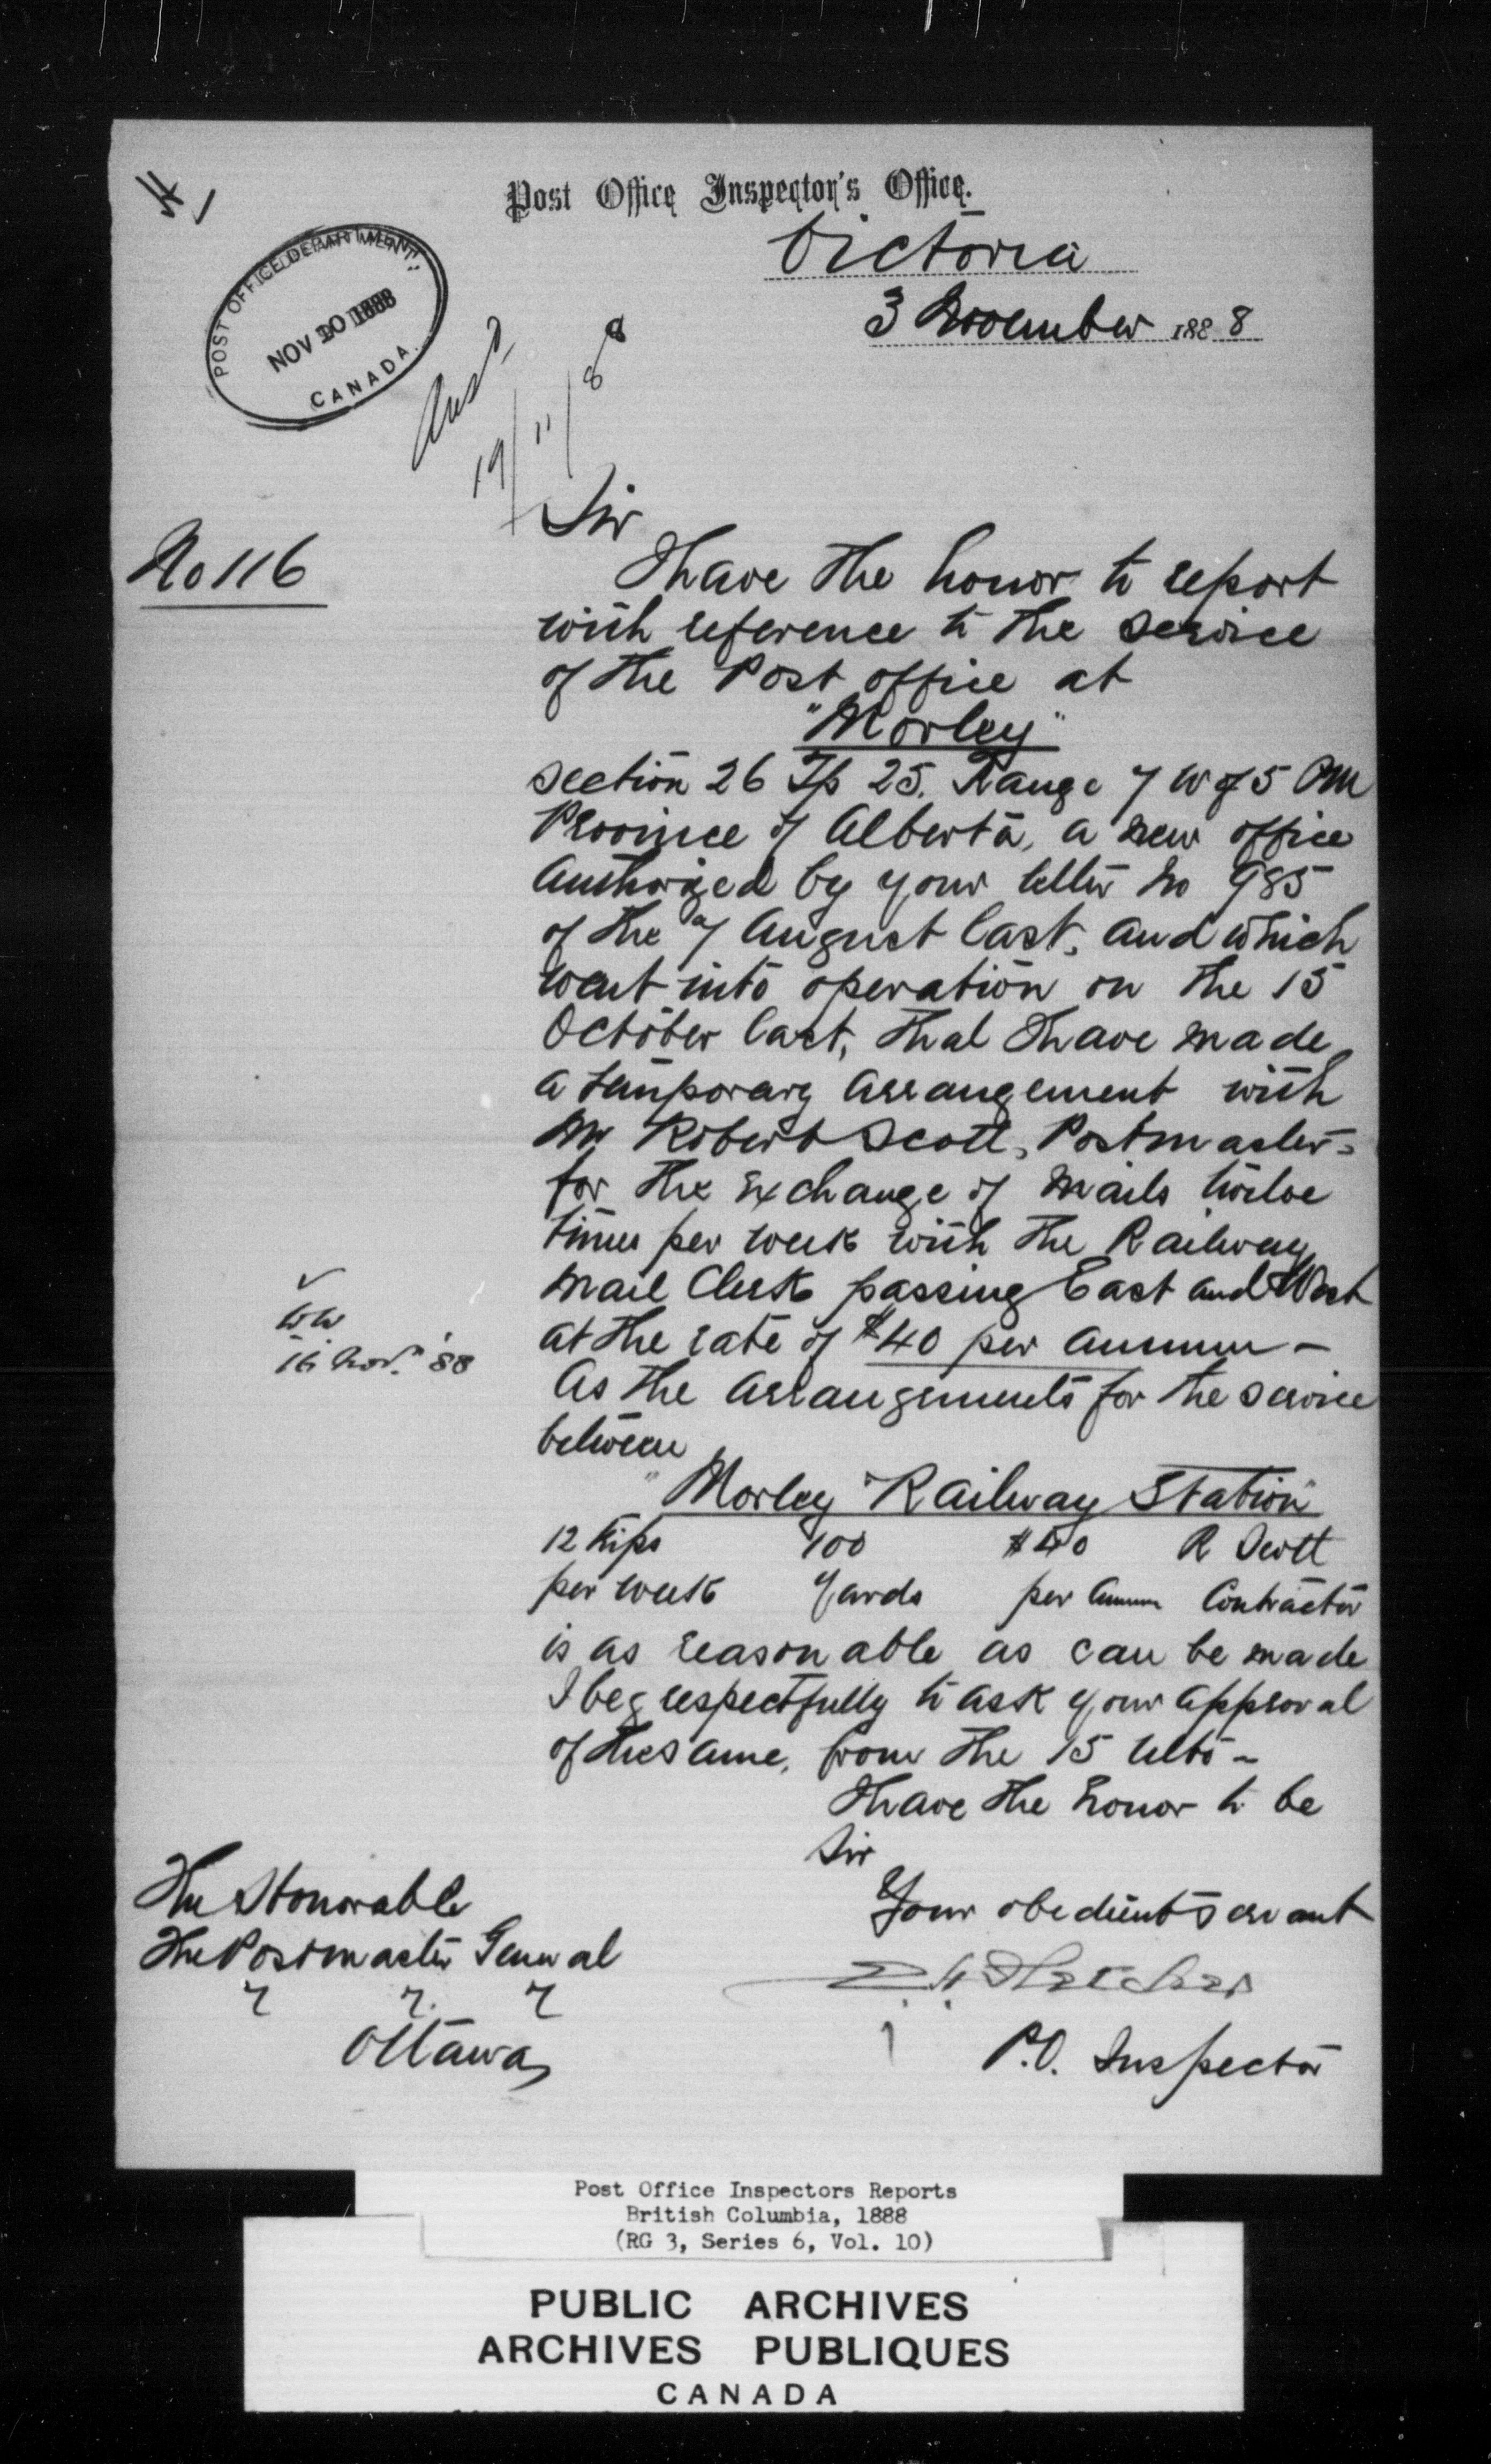 Post Office Inspector's Office.
Victoria
3 November 1888
POST OFFICE DEPARTMENT
NOV 10 1888
CANADA.
Ansd
19/11/88
No 116
Sir
I have the honor to report
with reference to the service
of the Post office at
"Morley"
Section 26 Tp 25. Range 7 W of 5 PM
Province of Alberta, a new office
Authorized by your letter No 985
of the 7 August last, and which
went into operation on the 15
October last, that I have made
a temporary arrangement with
Mr Robert Scott, Postmaster,
for the exchange of mails twelve
times per week with the Railway
Mail Clerk passing East and West
at the rate of $40 per annum –
As the arrangements for the service
between
"Morley & Railway Station"
12 trips 100 $40 R Scott
per week Yards per Annum Contractor
is as reasonable as can be made
I beg respectfully to ask your approval
of the same, from the 15 Ulto –
I have the honor to be
Sir
Your obedient servant
E. H. Fletcher
P.O. Inspector
WW
16 Nov. '88
The Honorable
The Postmaster General
Ottawa
Post Office Inspectors Reports
British Columbia, 1888
(RG 3, Series 6, Vol. 10)
PUBLIC ARCHIVES
ARCHIVES PUBLIQUES
CANADA